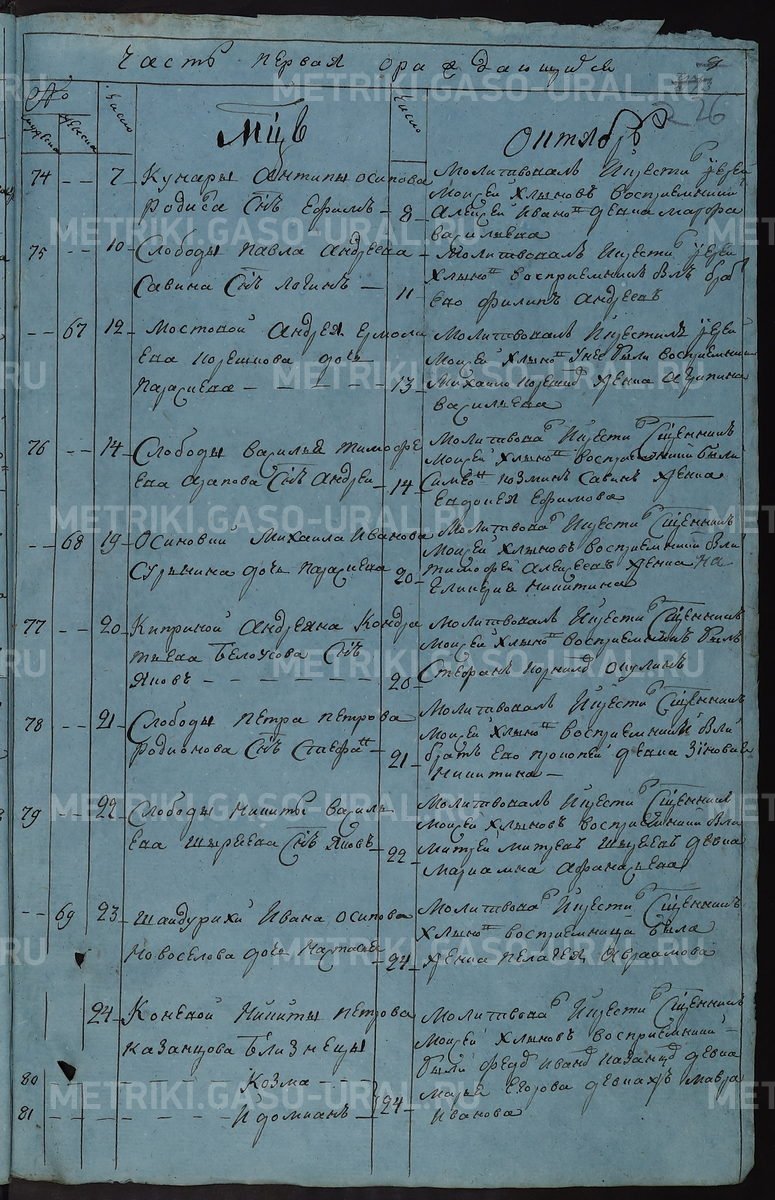 Часть первая ораждающихся
226
№
мужеска
женска
число
Мцъ
число
октябрь
74 -- 7 Кунары Антипы осипова
родиса Снъ Ефимъ 8
Молитвовалъ и крестил иерей
Моисей Хлыновъ восприемники
Алексей Ивано девка марфа
васильева
75 -- 10 Слободы Павла Андреева
Савина Снъ Логинъ 11
Молитвовалъ и крестил иерей
Хлыно восприемникъ былъ брат
ево Филипъ Андреевъ
-- 67 12 Мостовой Андрея Ермола
ева дочь
Параскева 13
Молитвовалъ и крестилъ иерей
Моисей Хлыно у нее были восприемники
Михайло женка Акулина
васильева
76 -- 14 Слободы василья тимофе
ева Агапова Снъ Андрей 14
Молитвова и крести Сщенникъ
Моисей Хлыновъ восприемники были
Симео козминъ Савинъ женка
Евдокея Ефимова
-- 68 19 Осиновки Михаила Иванова
дочь параскева 20
Молитвова и крести Сщенникъ
Моисей Хлыновъ восприемники были
тимофей Алексеевъ женка ка
Никитина
77 -- 20 Киприной Андреяна Кондра
тьева Белоусова Снъ
Яковъ 20
Молитвовалъ и крести Сщенникъ
Моисей Хлыно восприемникъ былъ
Стефанъ корнилов окулинъ
78 -- 21 Слободы Петра петрова
родионова Снъ 21
Молитвовалъ и крести Сщенникъ
Моисей Хлыно восприемники были
братъ ево прокопей девка Зиновия
Никитина
79 22 Слободы Никиты василь
ева Снъ Яковъ 22
Молитвовалъ и крести Сщенникъ
Моисей Хлыновъ восприемники были
Митрей Митреевъ девка
Мариамна Афанасьева
-- 69 23 шайдурихи Ивана осипова
Новоселова дочь Настасья 24
Молитвова и крести Сщенникъ
Хлыно восприемница была
женка пелагея Авраамова
24 Коневой Никиты петрова
казанцова близнецы
80 Козма
81 и домианъ 24
Молитвова и крести Сщенникъ
Моисей Хлыновъ восприемники
были федо Иванов казанцо девка
Марья Егорова девка мавра
Иванова
METRIKI.GASO-URAL.RU